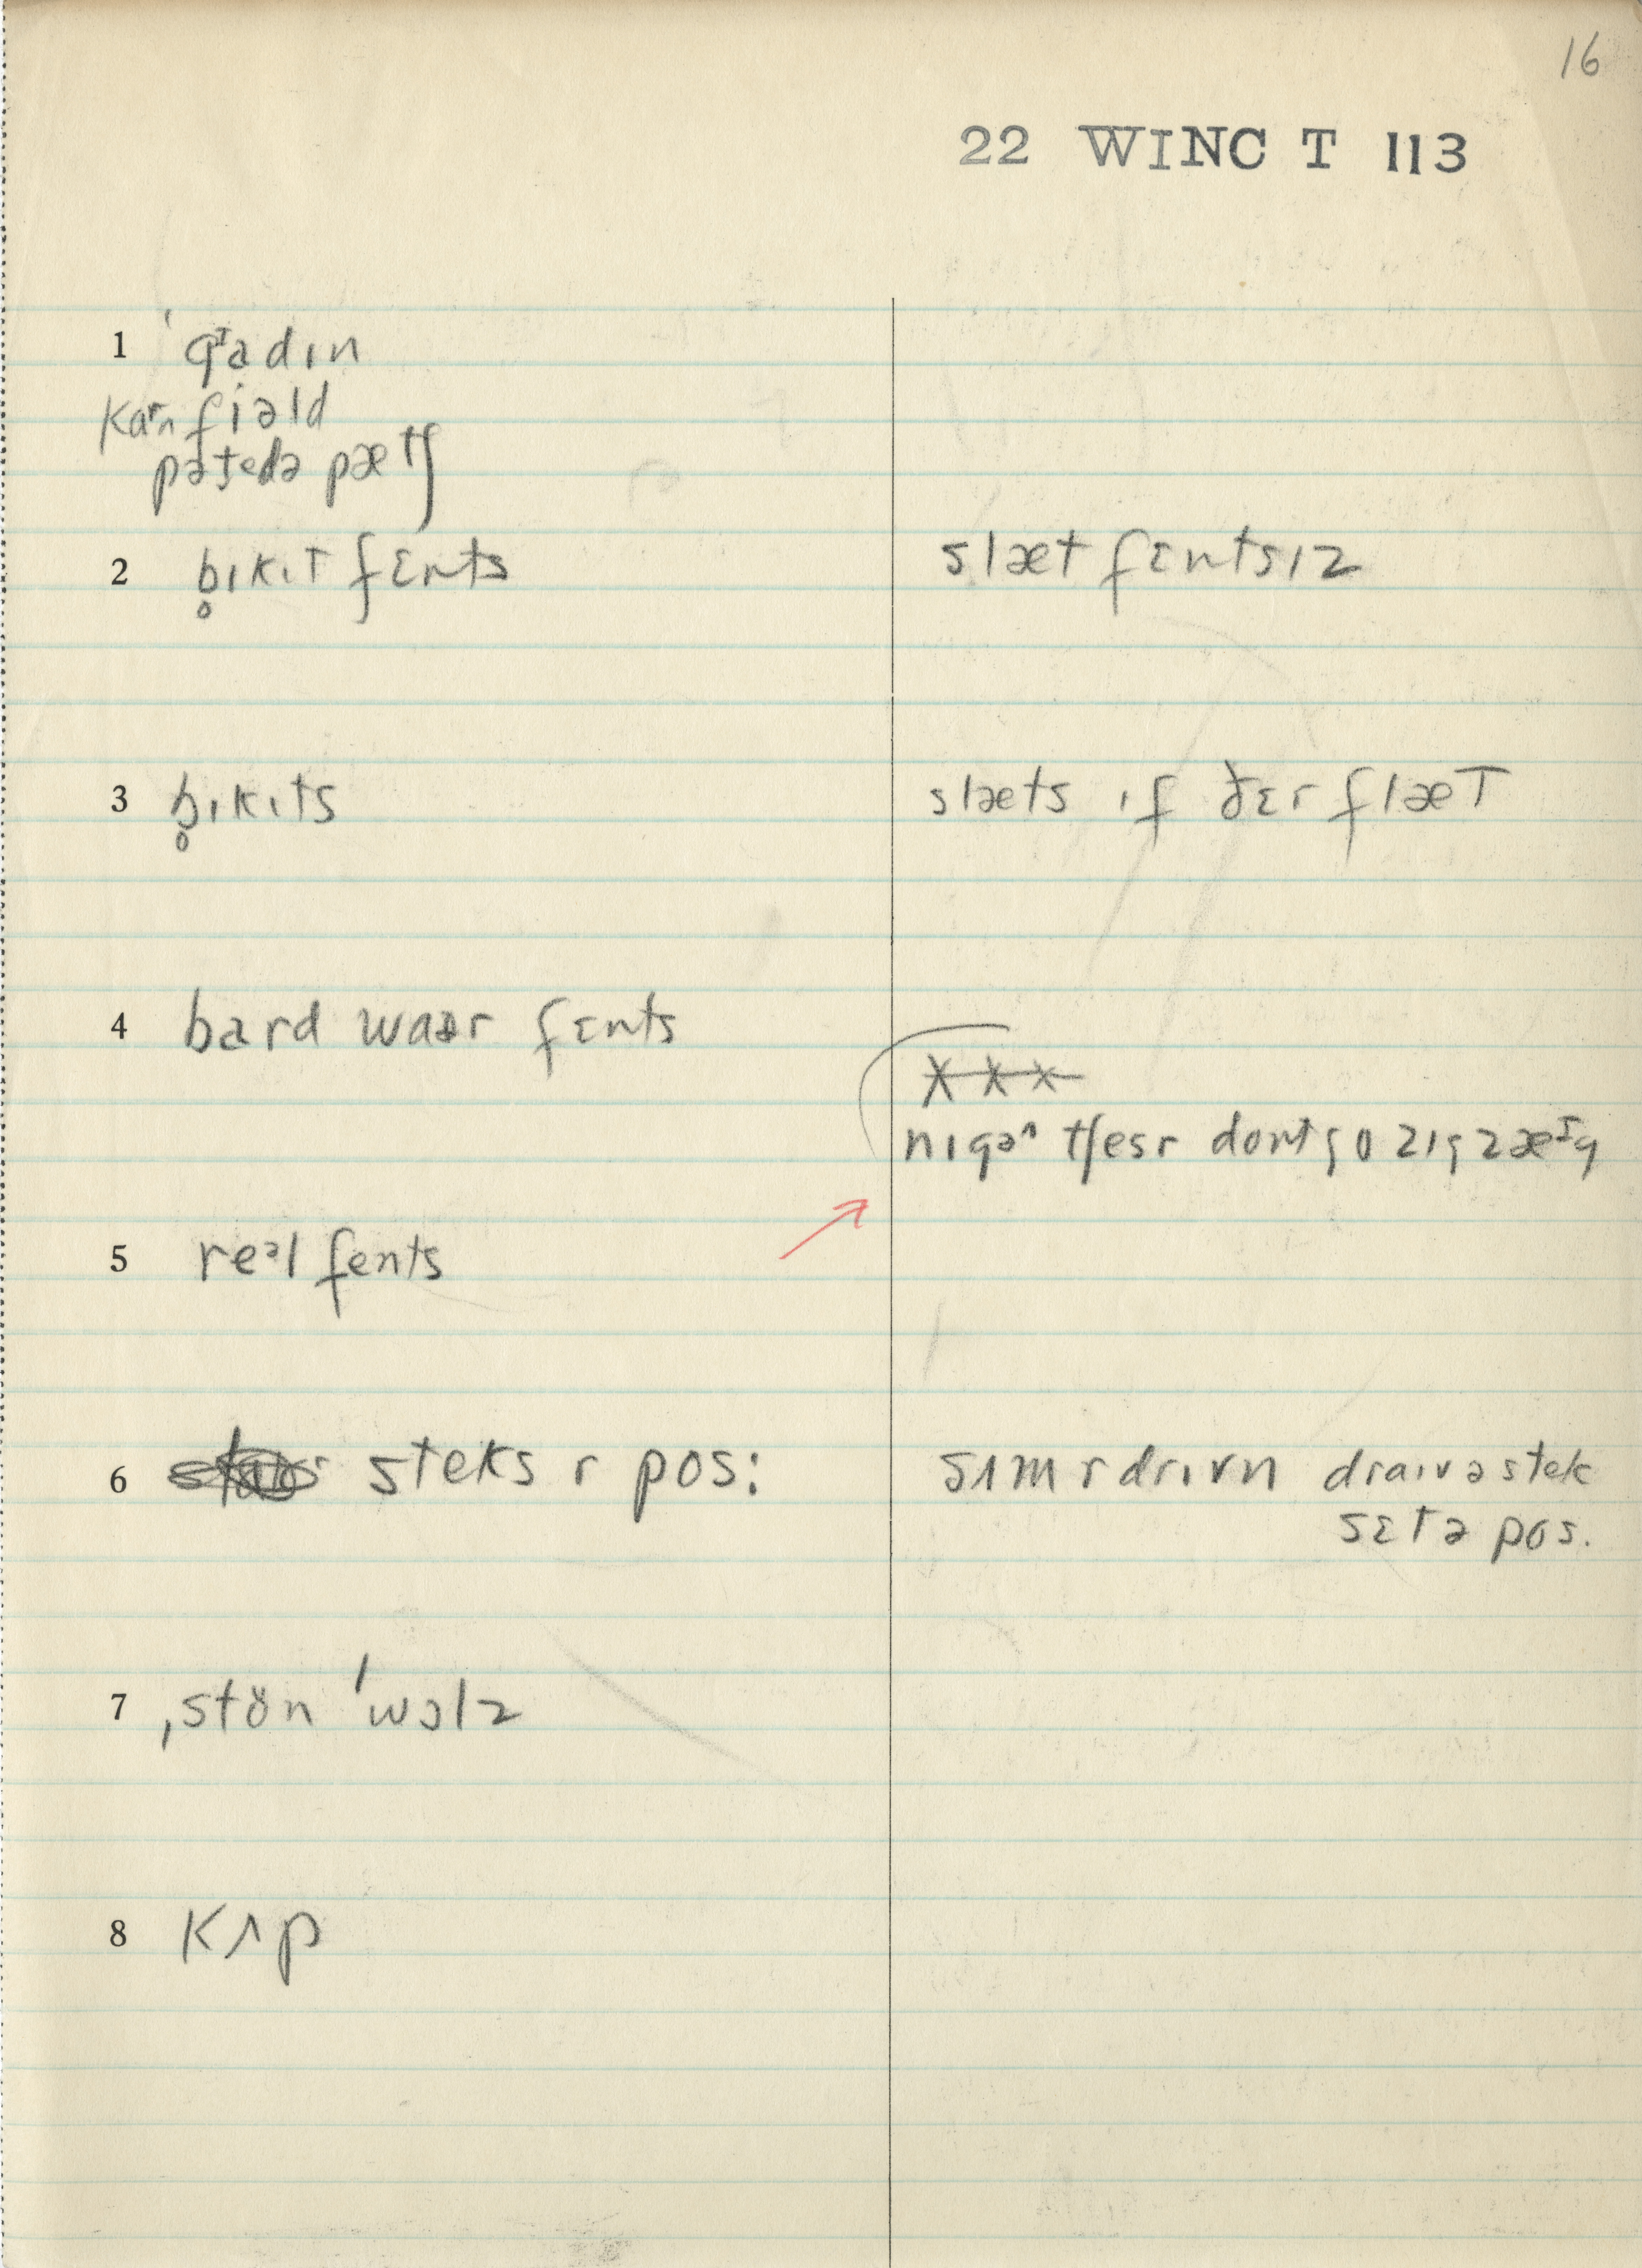 16
22 WINC T 113
1 ˈgᶦadɪn
kaʳn fiəld
pəţedə pætʃ
2 b̥ɪkɪt fɛnts
slæt fɛntsɪz
3 b̥ɪkɪts
slæts ɪf ðɛr flæt
4 bard waər fɛnts
x x x
nɪgəʌ tʃesr dont go zɪgzæᶦg
5 reᵊl fents
6 steks r pos:
sʌm r drɪvn draɪv ə stek
sɛt ə pos.
7 ˌstön ˈwɔlz
8 kʌp